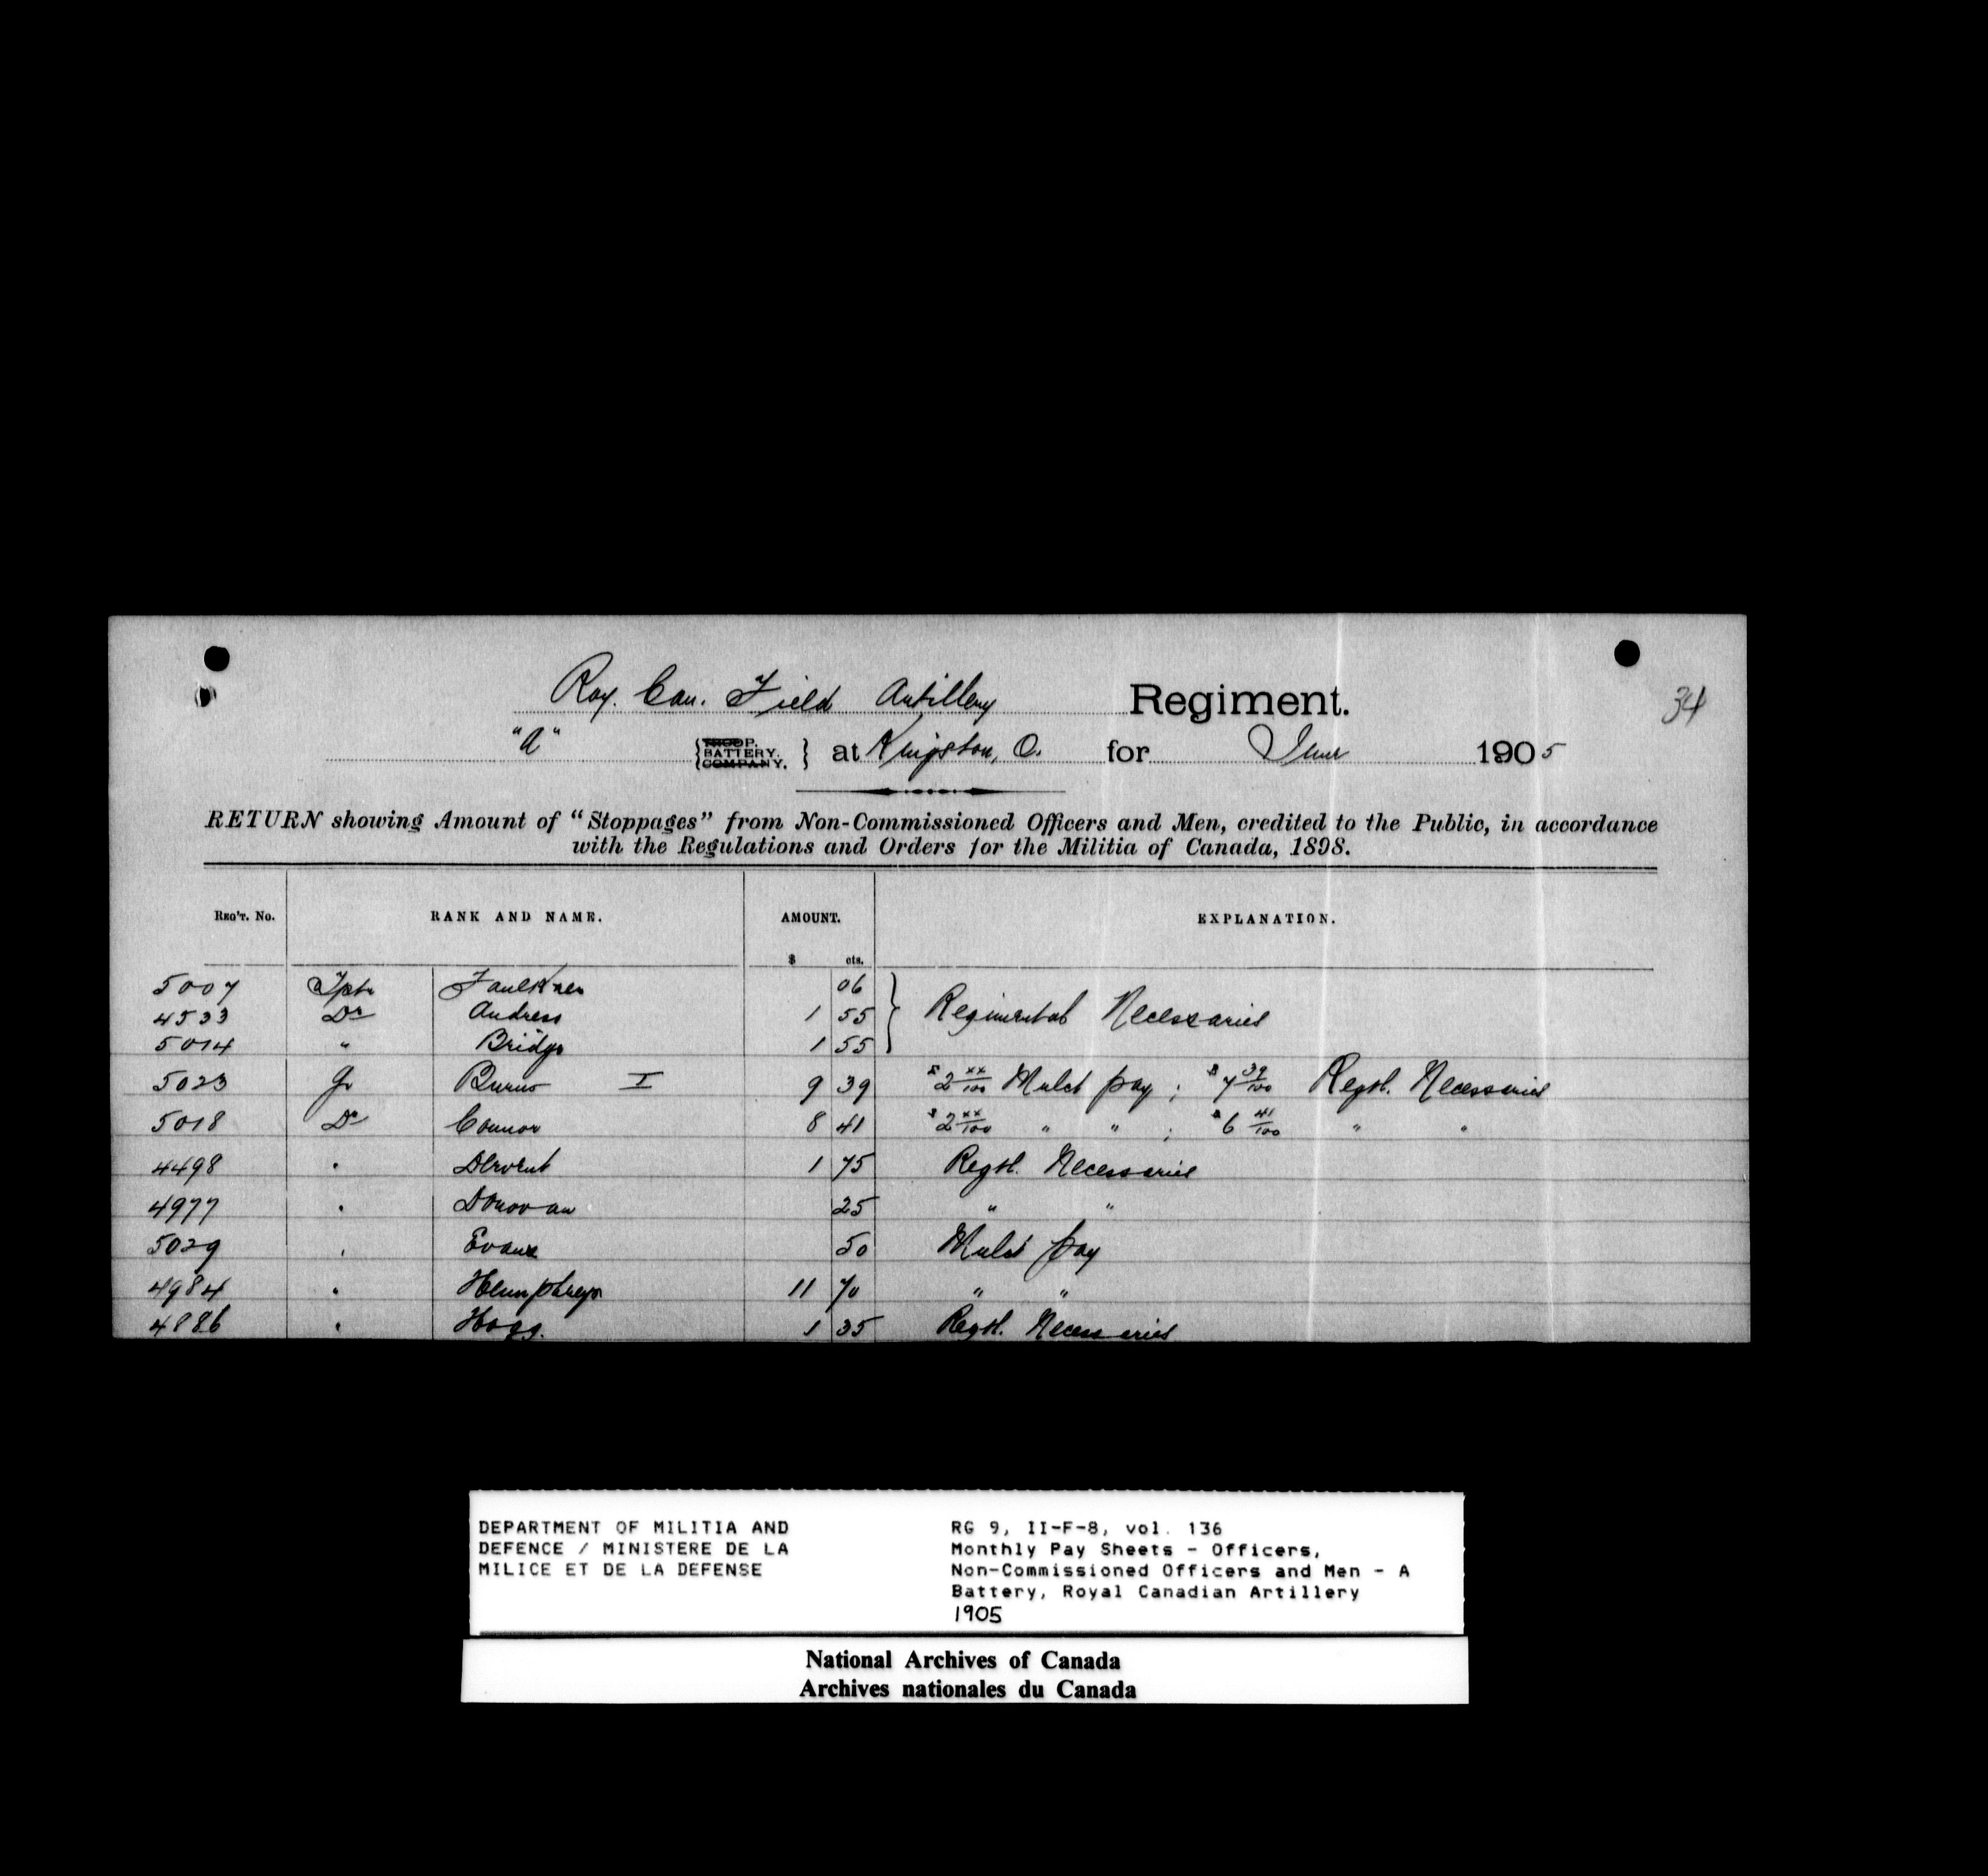 Roy. Can. Field Artillery Regiment.
34
"A" { TROOP. BATTERY. COMPANY. } at Kingston, O. for June 1905
RETURN showing Amount of "Stoppages" from Non-Commissioned Officers and Men, credited to the Public, in accordance
with the Regulations and Orders for the Militia of Canada, 1898.
REG'T. No. RANK AND NAME. AMOUNT. EXPLANATION.
$ cts.
5007 Tptr Faulkner 06
4533 Dr Andress 1 55 } Regimental Necessaries
5014 " Bridge 1 55
5023 Gr Burns I 9 39 $2 xx/100 Mulct pay ; $7 39/100 Regtl. Necessaries
5018 Dr Connor 8 41 $2 xx/100 " " ; $6 41/100 " "
4498 " 1 75 Regtl. Necessaries
4977 " Donovan 25 " "
5029 " Evans 50 Mulct pay
4984 " Humphreys 11 70 " "
4886 " Hogg. 1 35 Regtl. Necessaries
DEPARTMENT OF MILITIA AND
DEFENCE / MINISTERE DE LA
MILICE ET DE LA DEFENSE
RG 9, II-F-8, vol. 136
Monthly Pay Sheets - Officers,
Non-Commissioned Officers and Men - A
Battery, Royal Canadian Artillery
1905
National Archives of Canada
Archives nationales du Canada